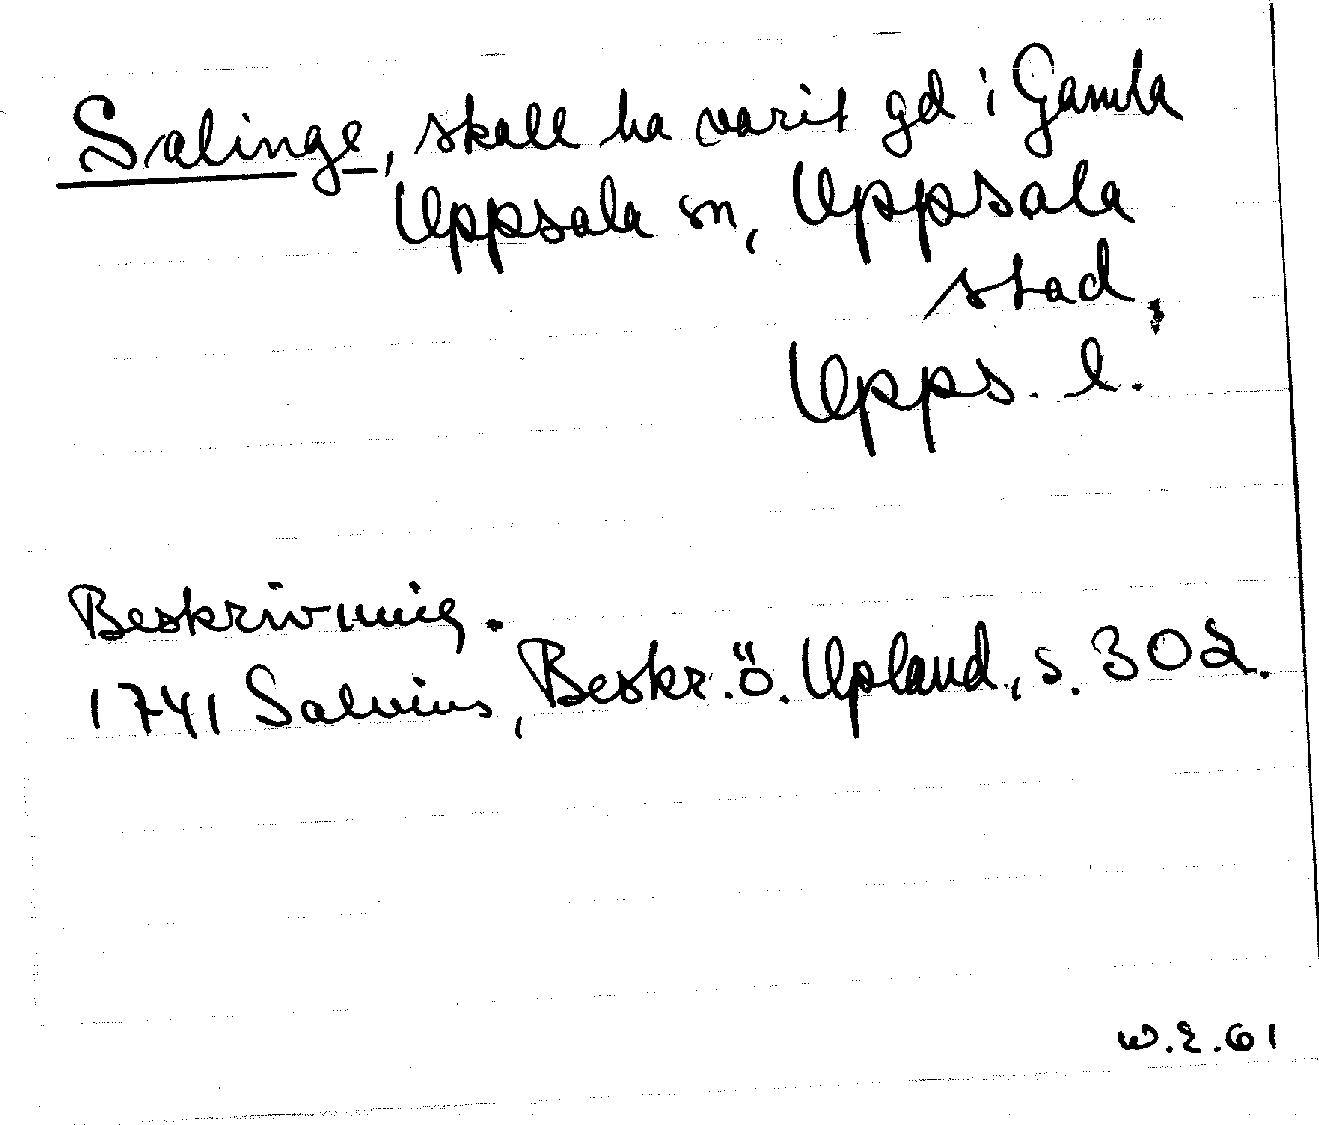 Salinge, skall ha varit gd i Gamla
Uppsala sn, Uppsala
stad,
Upps. l.
Beskrivning.
1741 Salvius, Beskr. ö. Upland, s. 302.
W.E.61